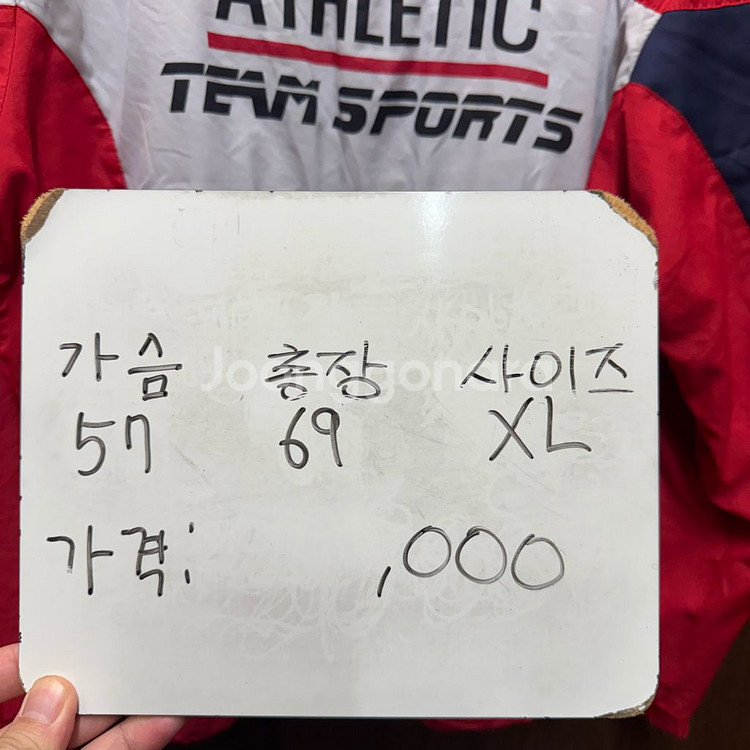 ATHLETIC
TEAM SPORTS
가슴 총장 사이즈
57 69 XL
가격: ,000
Joonggonara